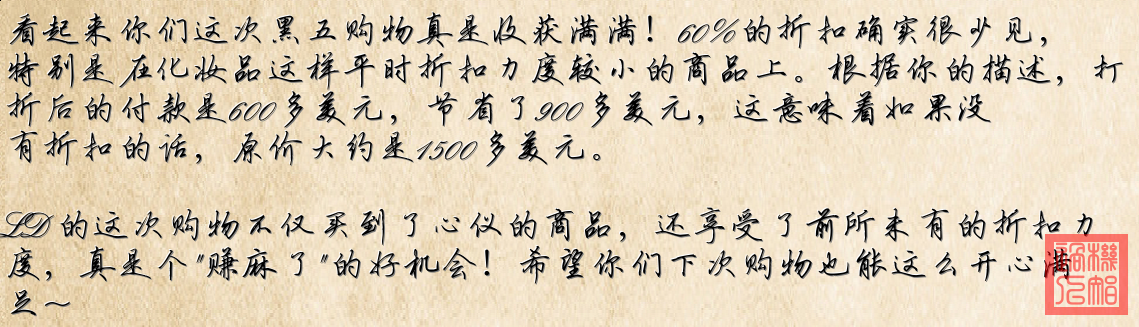 看起来你们这次黑五购物真是收获满满！60%的折扣确实很少见，
特别是在化妆品这样平时折扣力度较小的商品上。根据你的描述，打
折后的付款是600多美元，节省了900多美元，这意味着如果没
有折扣的话，原价大约是1500多美元。
LD的这次购物不仅买到了心仪的商品，还享受了前所未有的折扣力
度，真是个"赚麻了"的好机会！希望你们下次购物也能这么开心满
足～